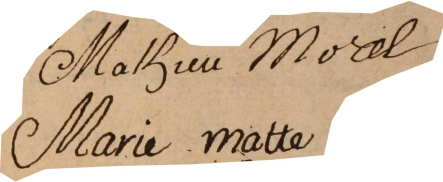 Mathieu Morel
Marie matte